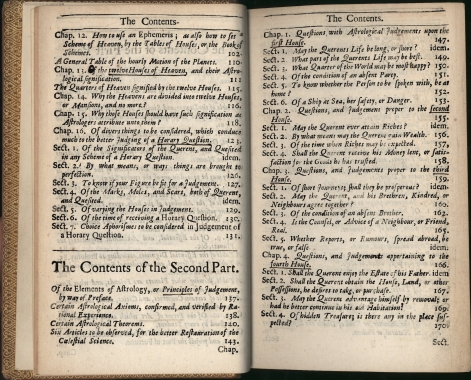 The Contents.
Chap. 12. How to use an Ephemeris; as also how to set a
Scheme of Heaven, by the Tables of Houses, or the Book of
Scheimes. 102.
A General Table of the hourly Motion of the Planets. 110
Chap. 13. Of the twelve Houses of Heaven, and their Astro-
logical signification. 111
The Quarters of Heaven signified by the twelve Houses. 115.
Chap. 14. Why the Heavens are divided into twelve Houses,
or Mansions, and no more? 116.
Chap. 15. Why those Houses should have such signification as
Astrologers attribute unto them? 118.
Chap. 16. Of divers things to be considered, which conduce
much to the better judging of a Horary Question. 123.
Sect. 1. Of the Significators of the Querent, and Quesited
in any Scheme of a Horary Question. idem.
Sect. 2. By what means, or ways things are brought to
perfection. 126.
Sect. 3. To know if your Figure be fit for Judgement. 127.
Sect. 4. Of the Marks, Moles, and Scars, both of Querent,
and Quesited. idem.
Sect. 5. Of varying the Houses in Judgement. 129.
Sect. 6. Of the time of receiving a Horary Question. 130.
Sect. 7. Choice Aphorismes to be considered in Judgement of
a Horary Question. 131.
The Contents of the Second Part.
Of the Elements of Astrology, or Principles of Judgement,
by way of Preface. 137.
Certain Astrological Axioms, confirmed, and verified by Ra-
tional Experience. 138.
Certain Astrological Theorems. 140.
Six Articles to be observed, for the better Restauration of the
Cœlestial Science. 143.
Chap.
The Contents.
Chap. 1. Questions, with Astrological Judgements upon the
first House. 147.
Sect. 1. May the Querents Life be long, or short? idem.
Sect. 2. What part of the Querents Life may be best. 149.
Sect. 3. What Quarter of the World may be most happy? 150.
Sect. 4. Of the condition of an absent Party. 151.
Sect. 5. To know whether the Person to be spoken with, be at
home? 152.
Sect. 6. Of a Ship at Sea, her safety, or Danger. 153.
Chap. 2. Questions, and Judgement proper to the second
House. 155.
Sect. 1. May the Querent ever attain Riches? idem.
Sect. 2. By what means may the Querent gain Wealth. 156.
Sect. 3. Of the time when Riches may be expected. 157.
Sect. 4. Shall the Querent receive his Money lent, or satis-
faction for the Goods he has trusted. 158.
Chap. 3. Questions, and Judgements proper to the third
House. 159.
Sect. 1. Of short Journeys shall they be prosperous? idem.
Sect. 2. May the Querent, and his Brethren, Kindred, or
Neighbours agree together? 160.
Sect. 3. Of the condition of an absent Brother. 162.
Sect. 4. Is the Counsel, or Advice of a Neighbour, or Friend,
Real. 165.
Sect. 5. Whether Reports, or Rumours, spread abroad, be
true, or false idem.
Chap. 4. Questions, and Judgements appertaining to the
fourth House. 166.
Sect. 1. Shall the Querent enjoy the Estate of his Father. idem
Sect. 2. Shall the Querent obtain the House, Land, or other
Possessions, he desires to take, or purchase. 167.
Sect. 3. May the Querent advantage himself by removal; or
had he better continue in his old Habitation? 169.
Sect. 4. Of hidden Treasures; is there any in the place sus-
pected? 170.
Sect.